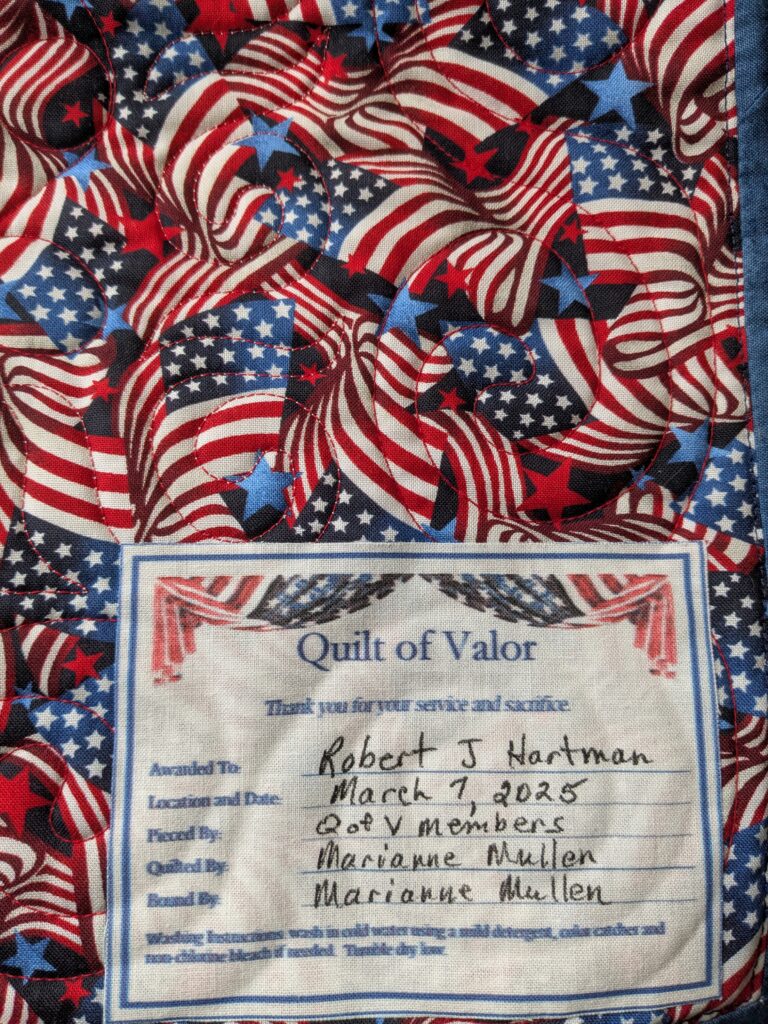 Quilt of Valor
Thank you for your service and sacrifice
Awarded To: Robert J Hartman
Location and Date: March 7, 2025
Pieced By: Q of V members
Quilted By: Marianne Mullen
Bound By: Marianne Mullen
Washing Instructions: wash in cold water using a mild detergent, color catcher and
non-chlorine bleach if needed. Tumble dry low.